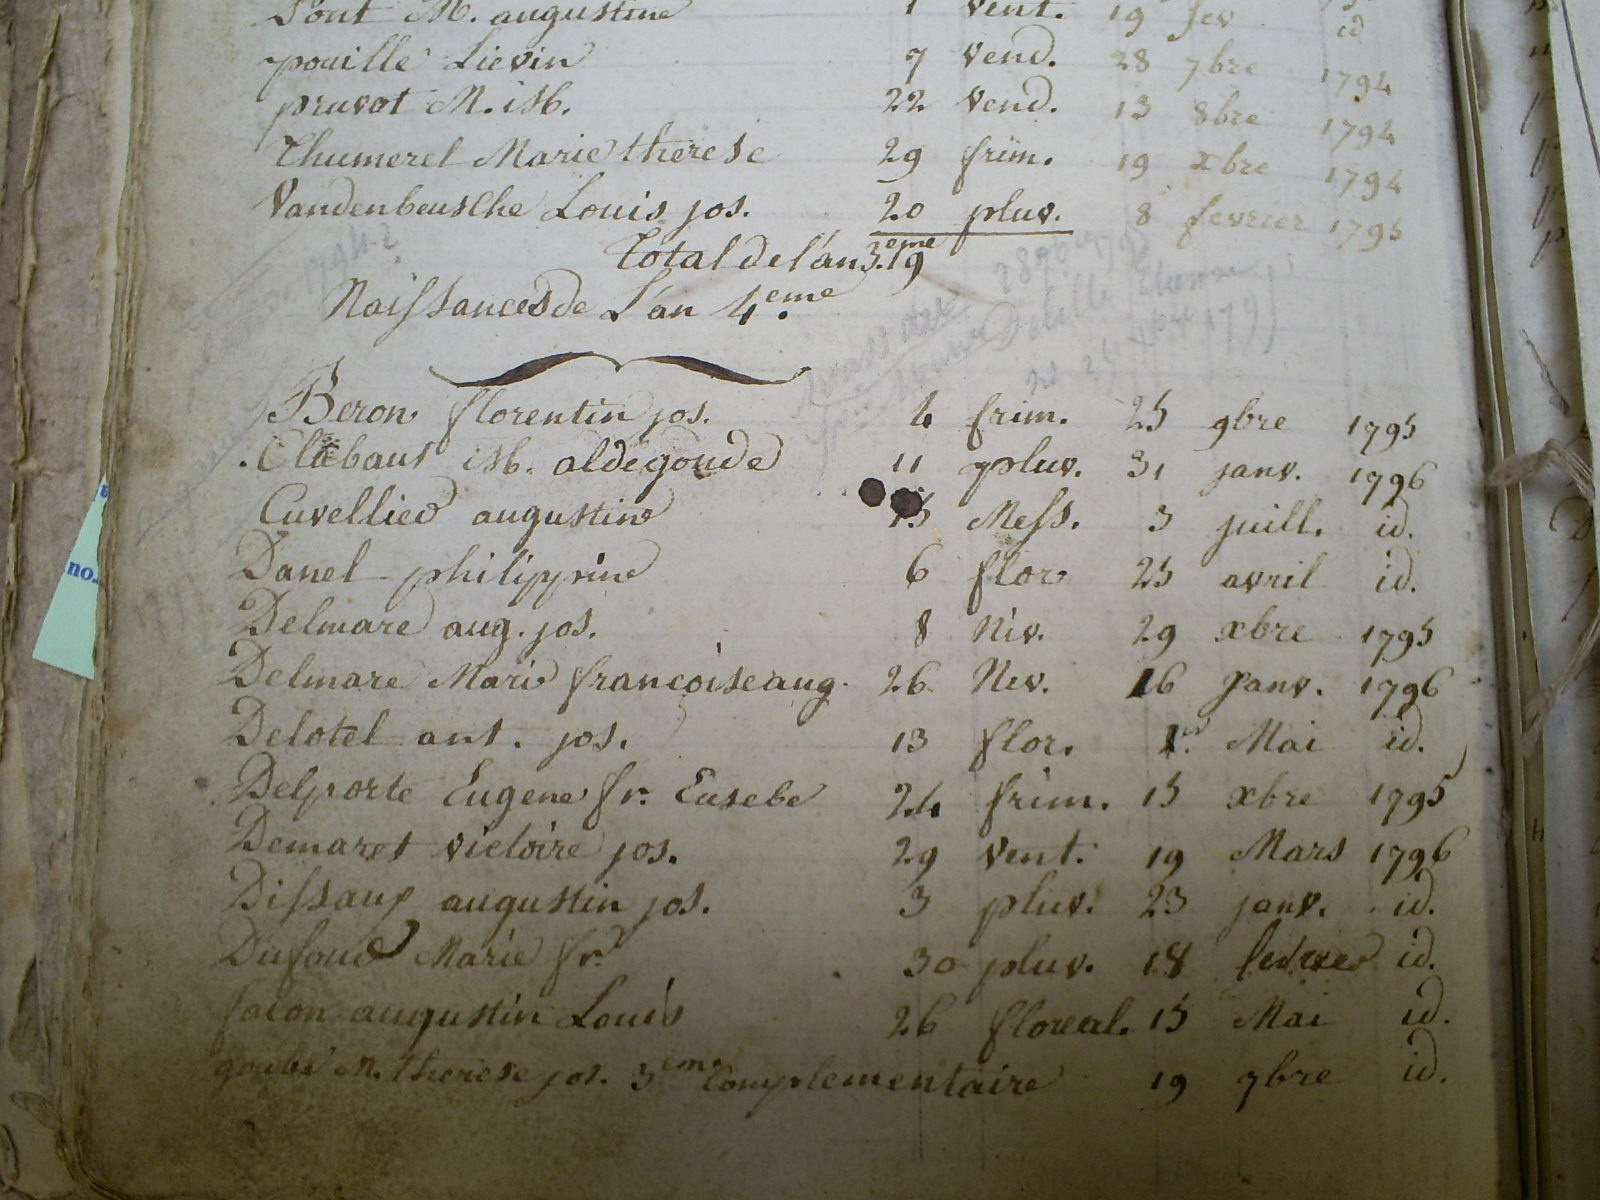 Pont M. augustine 1 vent. 19 fev id
pouille Lievin 7 vend. 28 7bre 1794
pruvot M. ISb. 22 vend. 13 8bre 1794
Thumerel Marie therese 29 frim. 19 xbre 1794
Vandenbeusche Louis jos. 20 pluv. 8 fevrier 1795
Total de l'an 3.eme 19
Naissances de L'an 4.eme
Beron florentin jos. 4 frim. 25 9bre 1795
Clabaut ISb. aldegonde 11 pluv. 31 janv. 1796
Cuvellier augustine 15 Mess. 3 juill. id.
Danel philippine 6 flor 25 avril id.
Delmare aug. jos. 8 Niv. 29 xbre 1795
Delmare Marie françoise aug. 26 Niv. 16 janv. 1796
Delotel ant. jos. 13 flor. 1.er Mai id.
Delporte Eugene fr. Eusebe 24 frim. 15 xbre 1795
Demaret victoire jos. 29 vent. 19 Mars 1796
Dissaux augustin jos. 3 pluv. 23 janv. id.
Dufour Marie fr. 30 pluv. 18 id.
facon augustin Louis 26 floreal. 15 Mai id.
M. therese jos. 3eme Complementaire 19 7bre id.
no.